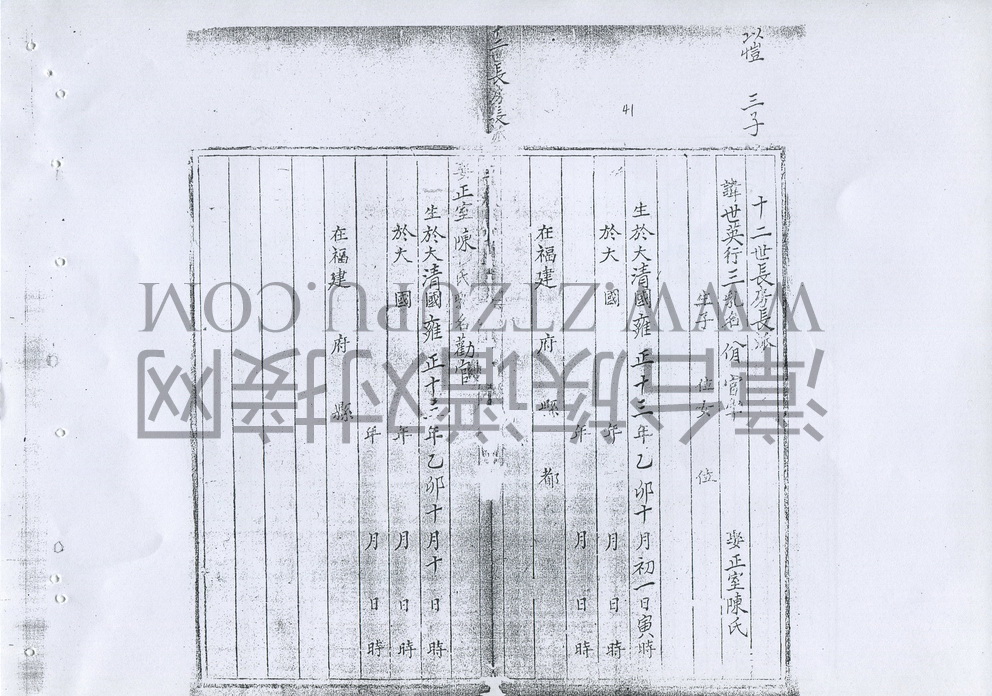 以愷 三子
41
十二世長房長派
諱世英行三乳名 官 娶正室陳氏
生子 位女 位
生於大清國雍正十三年乙卯十月初一日寅時
於大 國 年 月 日 時
年 月 日 時
在福建 府 縣 都
十二世長房長派
娶正室陳氏 名勸官
生於大清國雍正十三年乙卯十月十 日 時
於大 國 年 月 日 時
年 月 日 時
在福建 府 縣
WWW.ZTZUPU.COM
漳台族谱对接网